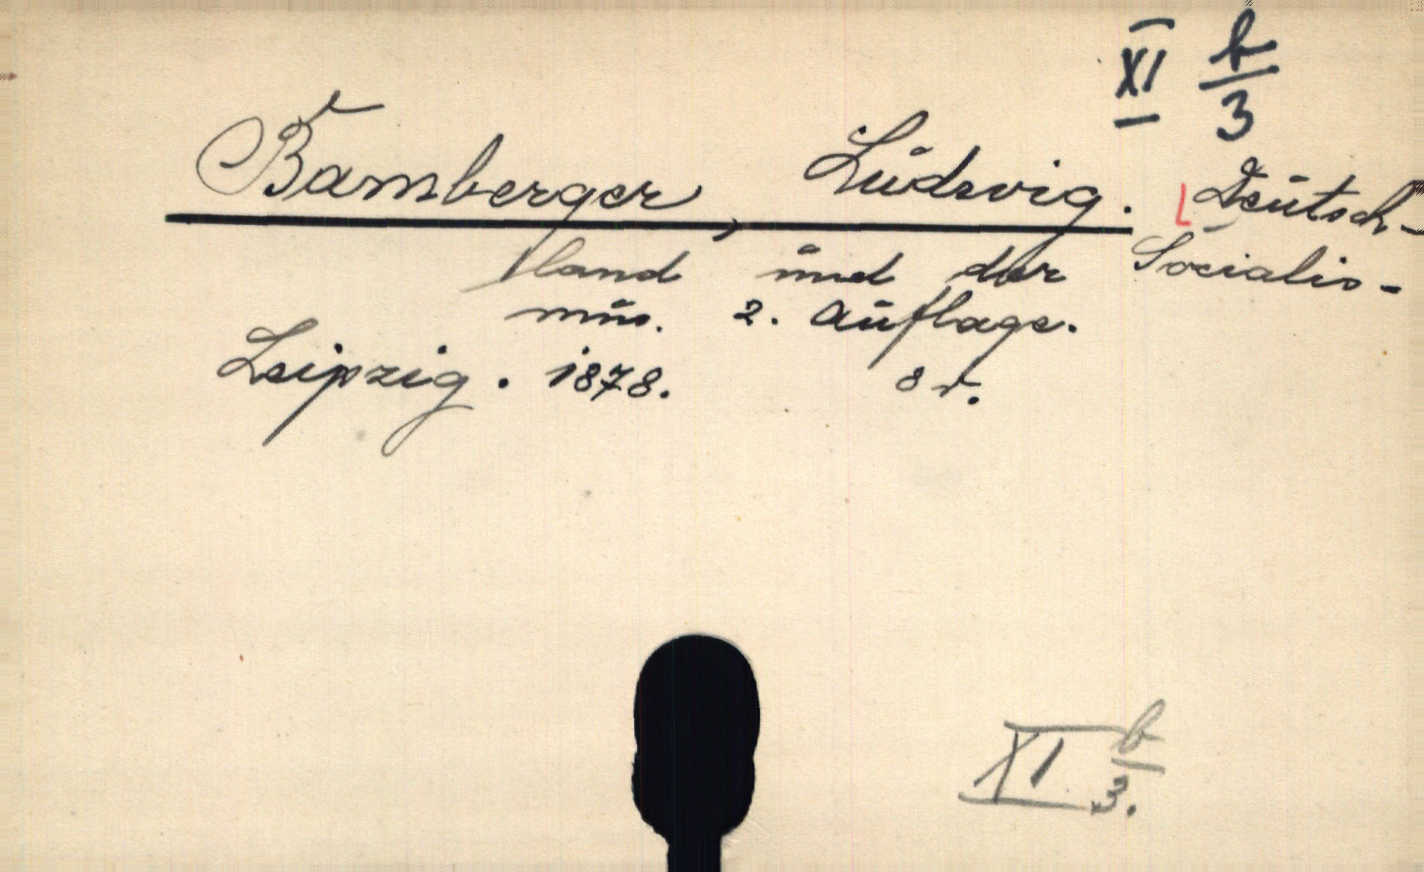 XI b/3
Bamberger, Ludwig. Deutsch-
land und der Socialis-
mus. 2. Auflage.
Leipzig. 1878. 8 r.
XI b/3.